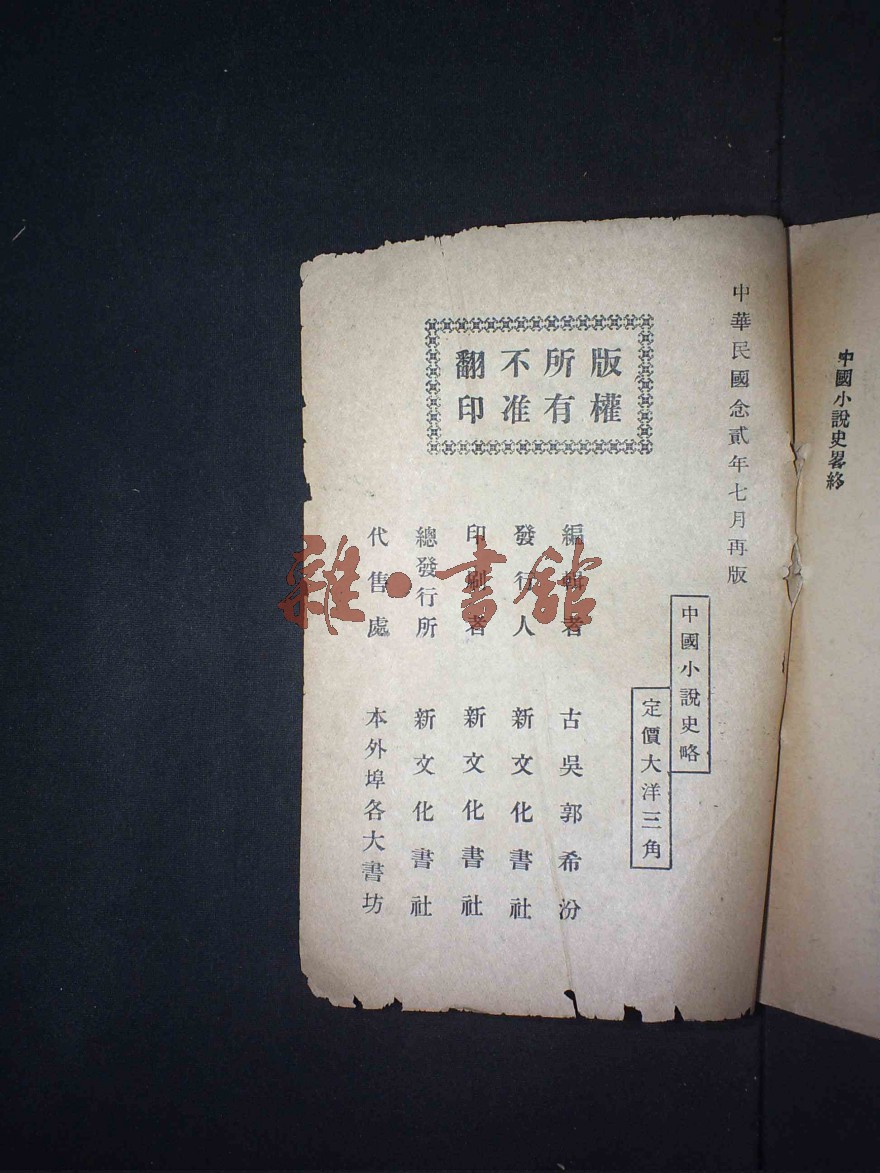 中國小說史畧終
中華民國念貳年七月再版
版權
所有
不准
翻印
中國小說史略
定價大洋三角
編輯者 古吳郭希汾
發行人 新文化書社
印刷者 新文化書社
總發行所 新文化書社
代售處 本外埠各大書坊
雜·書館